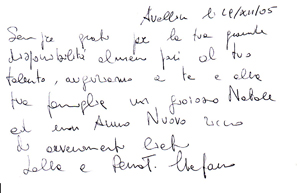 Avellin li 24/XII/05
Sempre grato per la tua grande
disponibilità almeno pari al tuo
talento, auguriamo a te e alla
tua famiglia un gioioso Natale
ed un Anno Nuovo ricco
di avvenimenti lieti
e Stefano